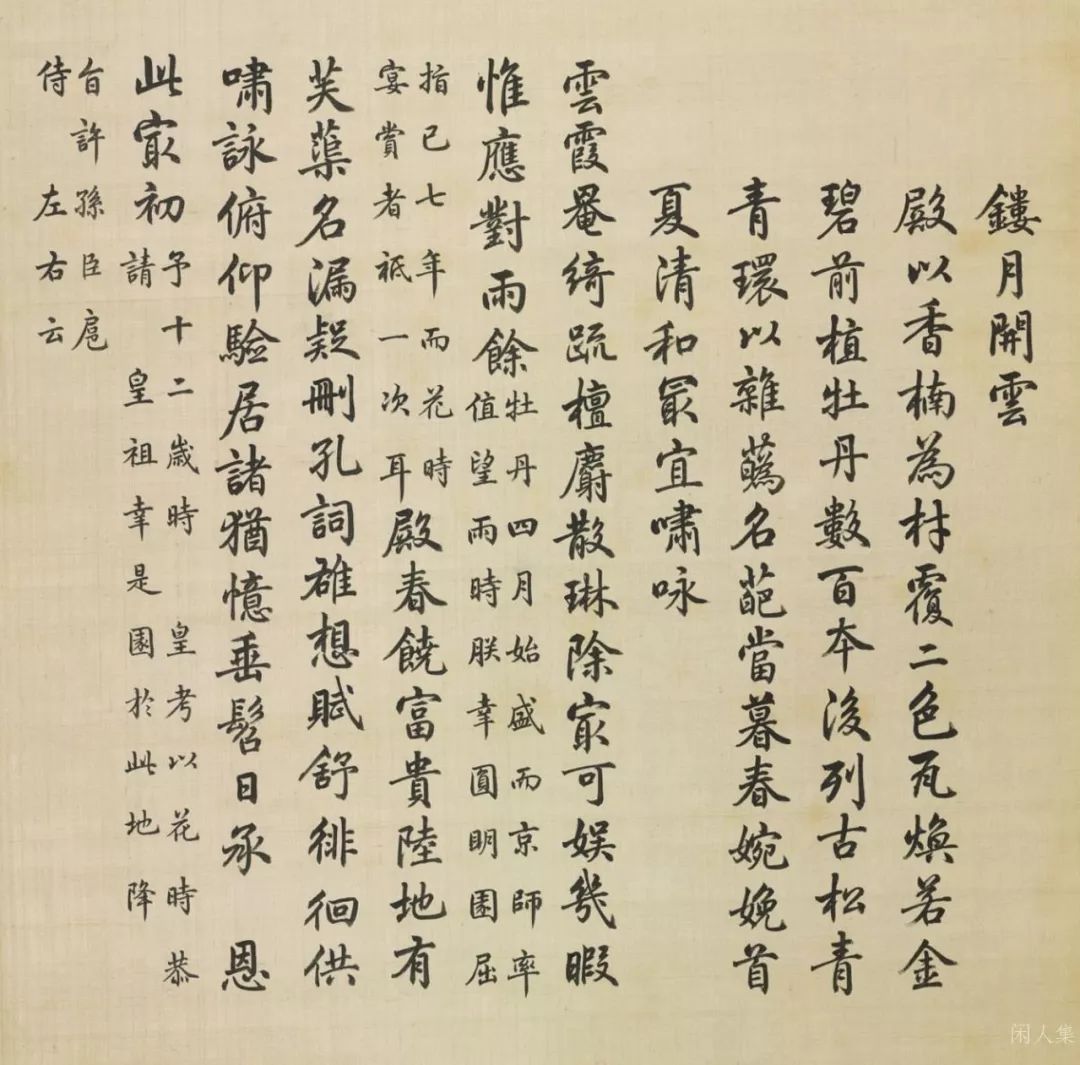 鏤月開雲
殿以香楠為材覆二色瓦煥若金
碧前植牡丹數百本後列古松青
青環以雜蘤名葩當暮春婉娩首
夏清和冣宜嘯咏
雲霞罨綺疏檀麝散琳除㝡可娛幾暇
惟應對雨餘
牡丹四月始盛而京師率
值望雨時朕幸圓明園屈
指已七年而花時
宴賞者祗一次耳
殿春饒富貴陸地有
芙蕖名漏疑刪孔詞雄想賦舒徘徊供
嘯詠俯仰驗居諸猶憶垂髫日承 恩
此㝡初
予十二歲時 皇考以花時恭
請 皇祖幸是園於此地降
旨許孫臣扈
侍 左右云
闲人集